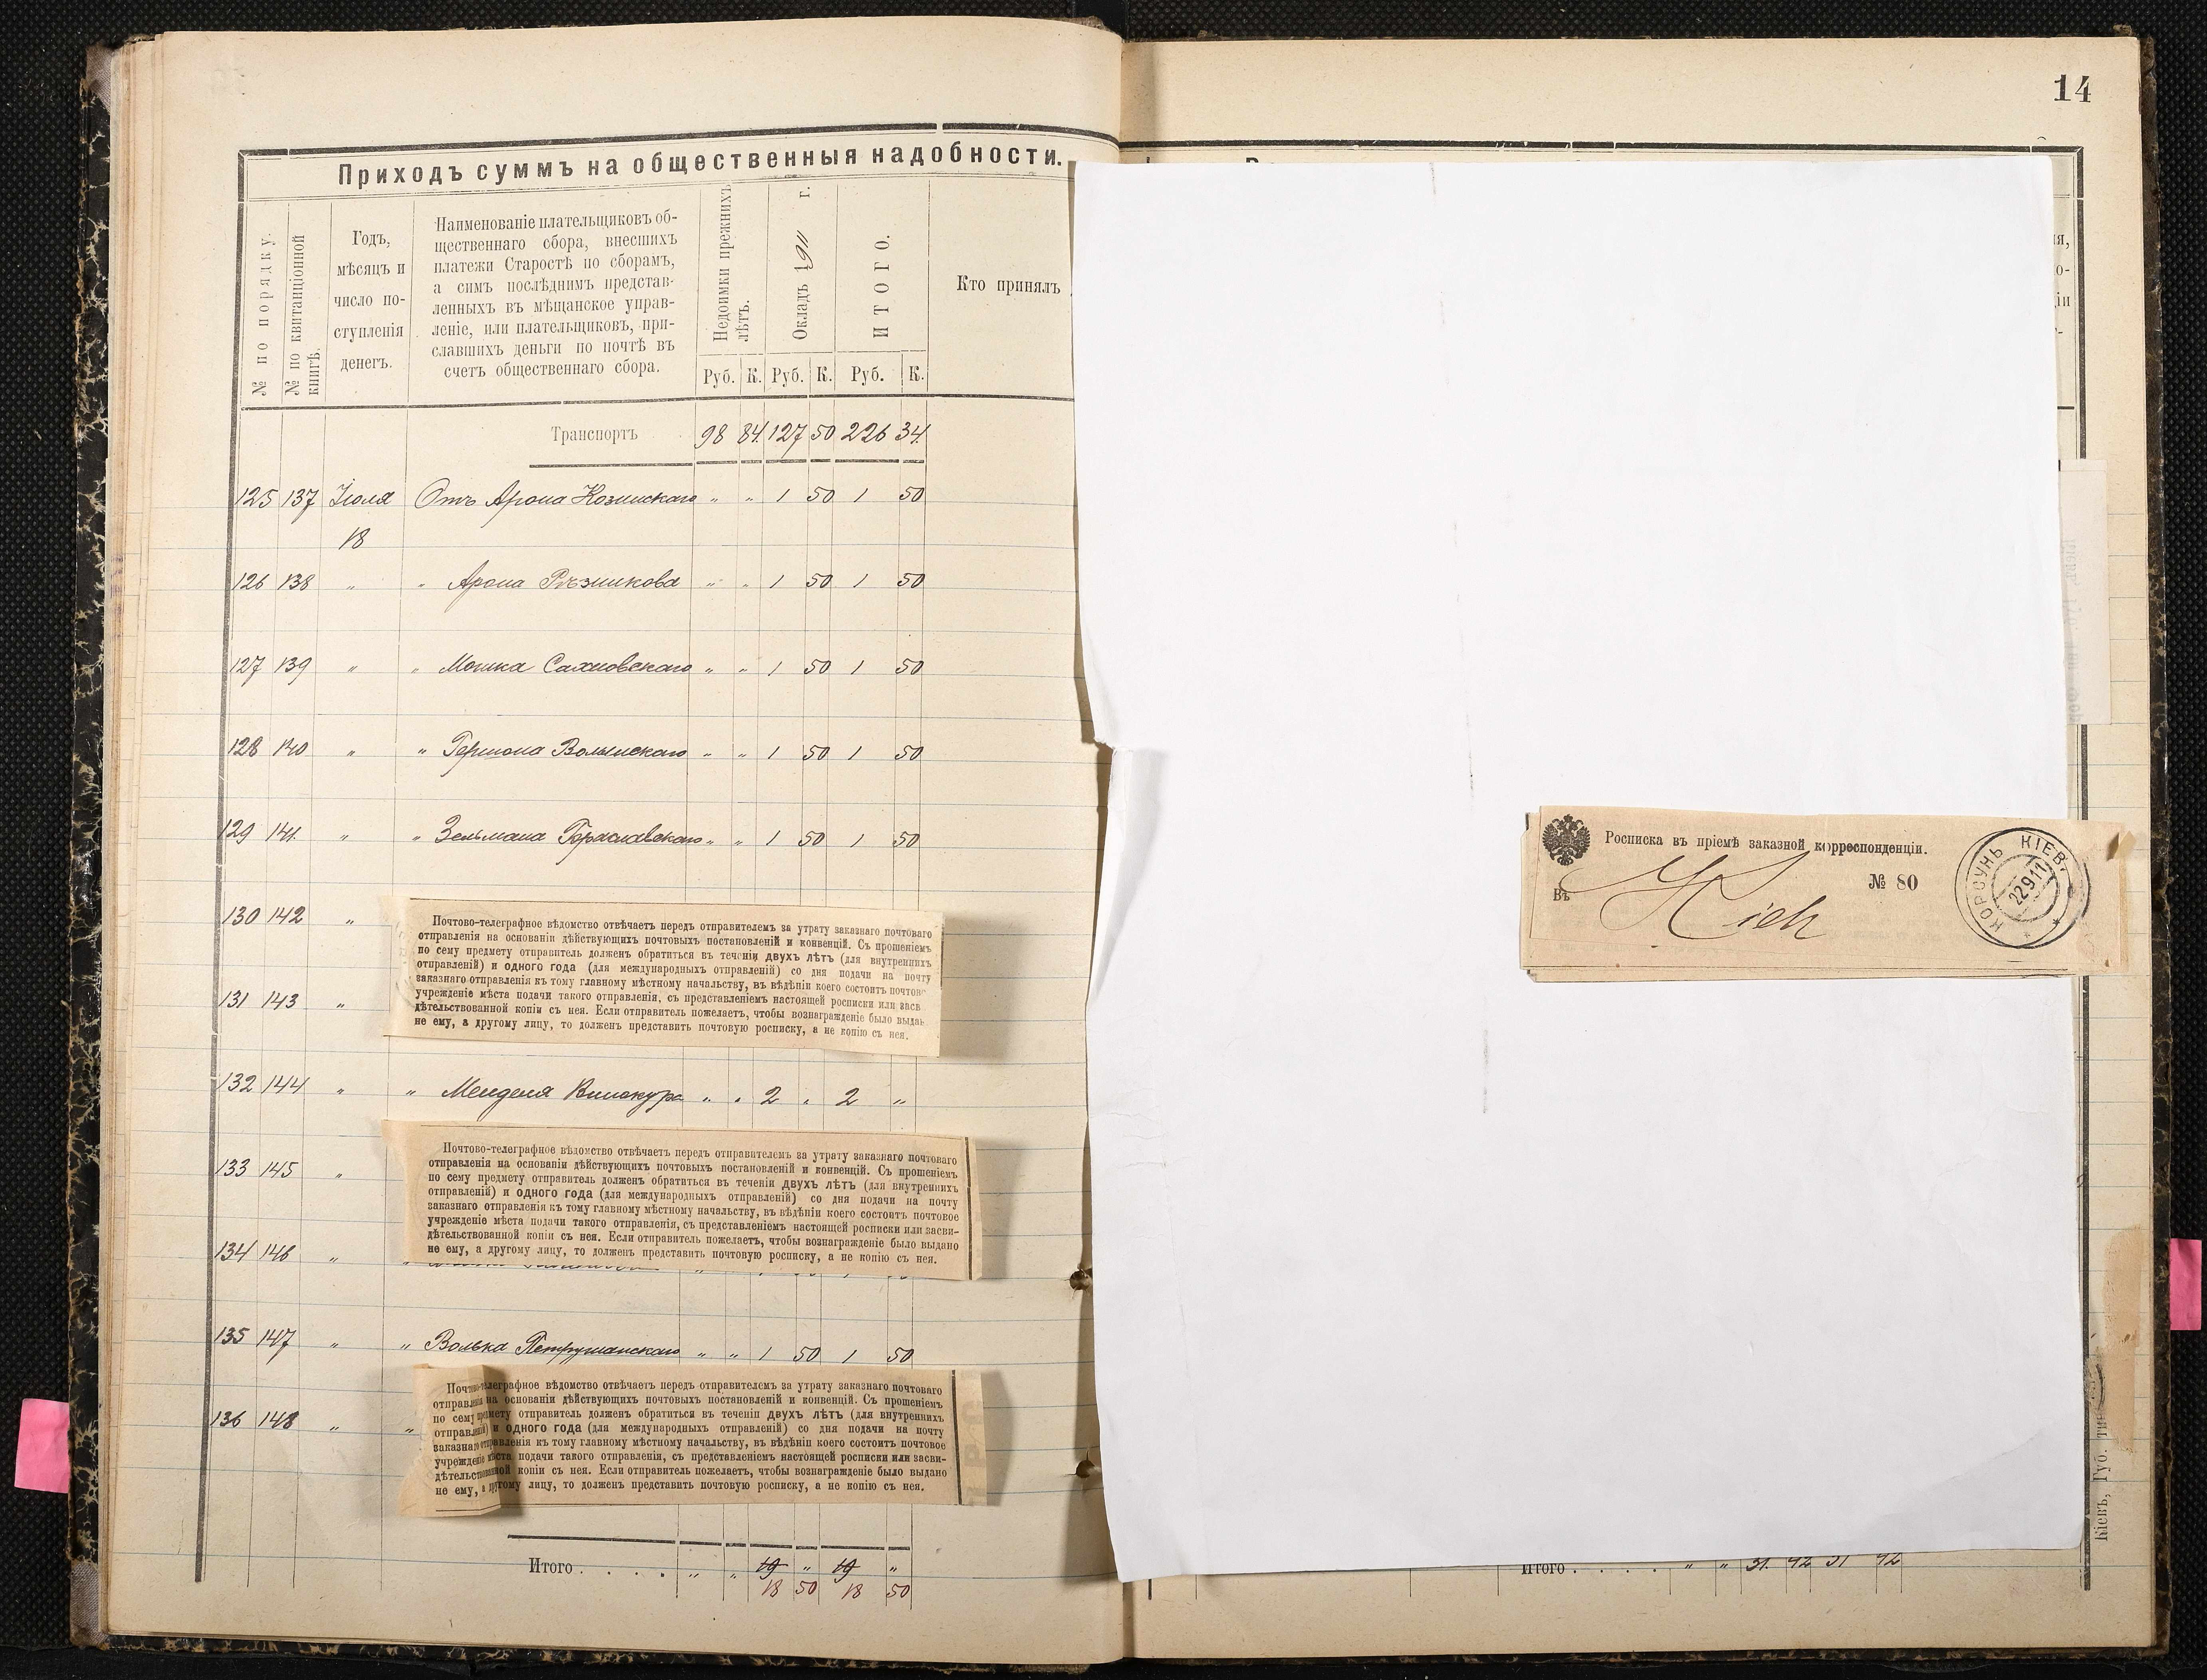 14
Приходъ суммъ на общественныя надобности.
№ по порядку.
№ по квитанціонной
книгѣ.
Годъ,
мѣсяцъ и
число по-
ступленія
денегъ.
Наименованіе плательщиковъ об-
щественнаго сбора, внесшихъ
платежи Старостѣ по сборамъ,
а симъ послѣднимъ представ-
ленныхъ въ мѣщанское управ-
леніе, или плательщиковъ, при-
славшихъ деньги по почтѣ въ
счетъ общественнаго сбора.
Недоимки прежнихъ
лѣтъ.
Окладъ 1911 г.
ИТОГО.
Кто принялъ
Руб. К. Руб. К. Руб. К.
Транспортъ 98 84 127 50 226 34
125 137 Іюля Отъ Арона Козинскаго " " 1 50 1 50
18
126 138 " " Арона Рѣзникова " " 1 50 1 50
127 139 " " Мошка Сахновскаго " " 1 50 1 50
128 140 " " Гершона Волынскаго " " 1 50 1 50
129 141 " " Зельмана " " 1 50 1 50
130 142 "
Почтово-телеграфное вѣдомство отвѣчаетъ передъ отправителемъ за утрату заказнаго почтоваго
отправленія на основаніи дѣйствующихъ почтовыхъ постановленій и конвенцій. Съ прошеніемъ
по сему предмету отправитель долженъ обратиться въ теченіи двухъ лѣтъ (для внутреннихъ
отправленій) и одного года (для международныхъ отправленій) со дня подачи на почту
заказнаго отправленія къ тому главному мѣстному начальству, въ вѣдѣніи коего состоитъ почтов
учрежденіе мѣста подачи такого отправленія, съ представленіемъ настоящей росписки или засв
дѣтельствованной копіи съ нея. Если отправитель пожелаетъ, чтобы вознагражденіе было выда
не ему, а другому лицу, то долженъ представить почтовую росписку, а не копію съ нея.
131 143 "
132 144 " " Менделя Винокура " " 2 " 2 "
Почтово-телеграфное вѣдомство отвѣчаетъ передъ отправителемъ за утрату заказнаго почтоваго
отправленія на основаніи дѣйствующихъ почтовыхъ постановленій и конвенцій. Съ прошеніемъ
по сему предмету отправитель долженъ обратиться въ теченіи двухъ лѣтъ (для внутреннихъ
отправленій) и одного года (для международныхъ отправленій) со дня подачи на почту
заказнаго отправленія къ тому главному мѣстному начальству, въ вѣдѣніи коего состоитъ почтовое
учрежденіе мѣста подачи такого отправленія, съ представленіемъ настоящей росписки или засви-
дѣтельствованной копіи съ нея. Если отправитель пожелаетъ, чтобы вознагражденіе было выдано
не ему, а другому лицу, то долженъ представить почтовую росписку, а не копію съ нея.
133 145 "
134 146 " "
135 147 " " Волька Петрушанскаго " " 1 50 1 50
Почтово-телеграфное вѣдомство отвѣчаетъ передъ отправителемъ за утрату заказнаго почтоваго
отправленія на основаніи дѣйствующихъ почтовыхъ постановленій и конвенцій. Съ прошеніемъ
по сему предмету отправитель долженъ обратиться въ теченіи двухъ лѣтъ (для внутреннихъ
отправленій) и одного года (для международныхъ отправленій) со дня подачи на почту
заказнаго отправленія къ тому главному мѣстному начальству, въ вѣдѣніи коего состоитъ почтовое
учрежденіе мѣста подачи такого отправленія, съ представленіемъ настоящей росписки или засви-
дѣтельствованной копіи съ нея. Если отправитель пожелаетъ, чтобы вознагражденіе было выдано
не ему, а другому лицу, то долженъ представить почтовую росписку, а не копію съ нея.
136 148 " "
Итого . . . . " " 19 " 19 "
18 50 18 50
Росписка въ пріемѣ заказной корреспонденціи.
Въ Кіевъ
№ 80
КОРСУНЬ КІЕВ.
22 9 11
Итого . . . . " " 31 42 31 42
Кіевъ, Губ. тип